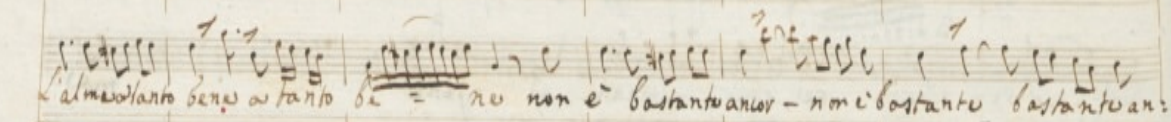 L'alma a tanto bene a tanto be = ne non è bastante ancor - non è bastante bastante an: